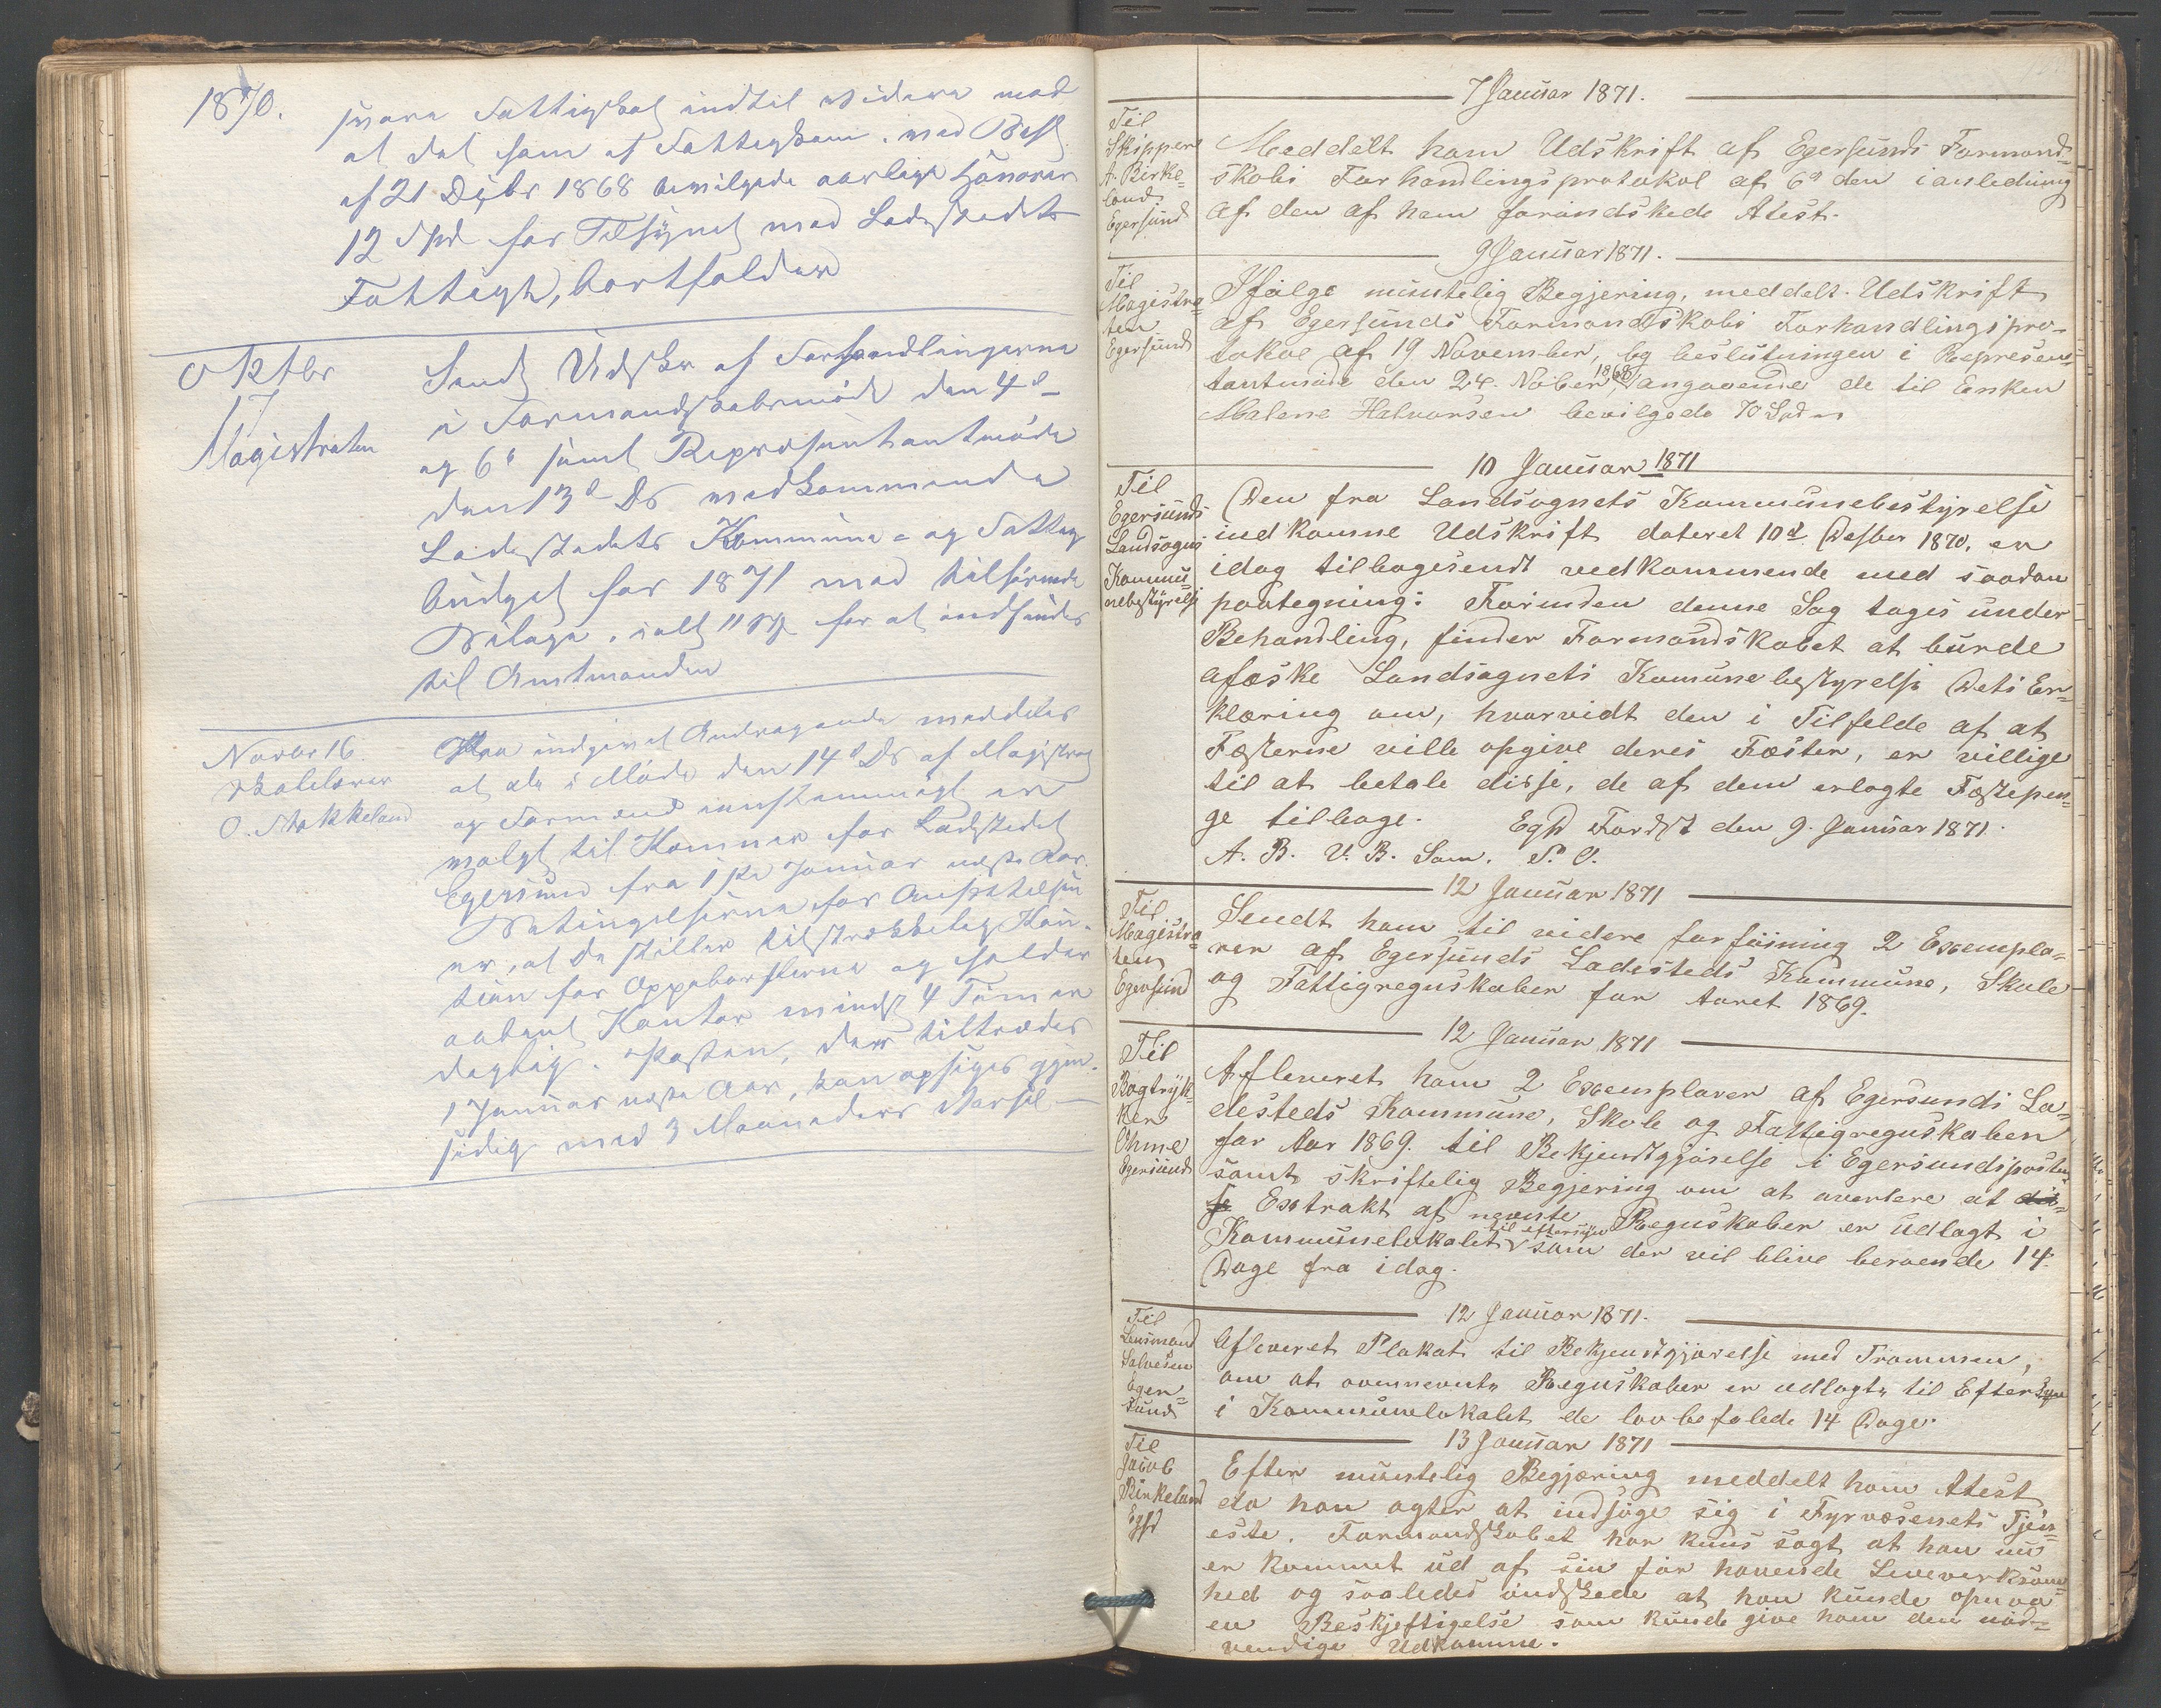 1870.
svare Fattigskat indtil videre mod
at det som af Fattigkom. ved Besl.
af 21 Dcbr 1868 bevilgede aarlige Honorar
12 Spd for Tilsynet med Ladestedets
Fattige, bortfalder
Oktbr
17
Magistraten
Sendt Udskr af Forhandlingerne
i Formandskabsmøde den 4d
og 6d samt Repræsentantmøde
den 13d Ds vedkommende
Ladestedets Kommune- og Fattig
budget for 1871 med tilhørende
Bilage, ialt 11 for at indsendes
til Amtmanden
Novbr 16.
Skolelærer
O. Stokkeland
indgivet Andragende meddeles
at de i Møde den 14d Ds af Magistrat
og Formænd eenstemmigt er
valgt til Kæmner for Ladestedet
Egersund fra 1ste Januar næste Aar.
Betingelserne for Ansættelsen
er, at De stiller tilstrækkelig Kau-
tion for Oppebørslerne og holder
aabent Kontor mindst 4 Timer
daglig. Posten, der tiltrædes
1 Januar næste Aar, kan opsiges gjen-
sidig med 3 Maaneders Varsel.
7 Januar 1871.
Til
Skipper
A. Birke-
land.
Egersund
Meddelt ham Udskrift af Egersunds Formand-
skabs Forhandlingsprotokol af 6d den i anledning
af den af ham forøndskede Atest.
9 Januar 1871.
Til
Magistra-
ten
Egersund
Ifølge muntelig Begjering, meddelt Udskrift
af Egersunds Formandskabs Forhandlingspro-
tokol af 19 November, og beslutningen i Repræsen-
tantmøde den 24. Nober 1868, angaaende de til Enken
Malene Halvorsen bevilgede 70 Spd
10 Januar 1871
Til
Egersunds
Landsogns
Kommu
nebestyrelse
Den fra Landsognets Kommunebestyrelse
indkomne Udskrift dateret 10d Desber 1870. er
idag tilbagesendt vedkommende med saadan
paategning: Forinden denne Sag tages under
Behandling, finder Formandskabet at burde
afæske Landsognets Komunebestyrelse Dets Er-
klæring om, hvorvidt den i Tilfelde af at
Fæsterne ville opgive deres Fæster, er villige
til at betale disse, de af dem erlagte Fæstepen-
ge tilbage. Egsd Fordst den 9. Januar 1871.
A. B. V. B. Søm. S. O.
12 Januar 1871
Til
Magistra-
ten
Egersund
Sendt ham til videre forføining 2 Exempla-
rer af Egersunds Ladesteds Kommune, Skole
og Fattigreguskaber for Aaret 1869.
12 Januar 1871
Til
Bogtryk-
ker
Ohme
Egersund
Afleveret ham 2 Exemplarer af Egersunds La-
desteds Kommune, Skole og Fattigreguskaber
for Aar 1869. til Bekjendtgjørelse i Egersundsposten
samt skriftelig Begjering om at avertere at dis-
se Exstrakt af nevnte Reguskaber er udlagt i
Kommunelokalet til eftersyn som der vil blive beroende 14
Dage fra idag.
12 Januar 1871.
Til
Lensmand
Salvesen
Eger-
sund
Afleveret Plakat til Bekjendtgjørelse med Trommen,
om at ovennevnte Reguskaber er udlagt til Eftersyn
i Kommunelokalet de lovbefalede 14 Dage.
13 Januar 1871
Til
Jacob
Birkeland
Egsd
Efter muntelig Begjæring meddelt ham Atest
da han agter at indsøge sig i Fyrvæsenets Tjen-
este. Formandskabet har kuns sagt at han nu
er kommet ud af sin før havende Levevirksom-
hed og saaledes øndskede at han kunde opnaa
en Beskjeftigelse som kunde give ham den nød-
vendige Udkomme.